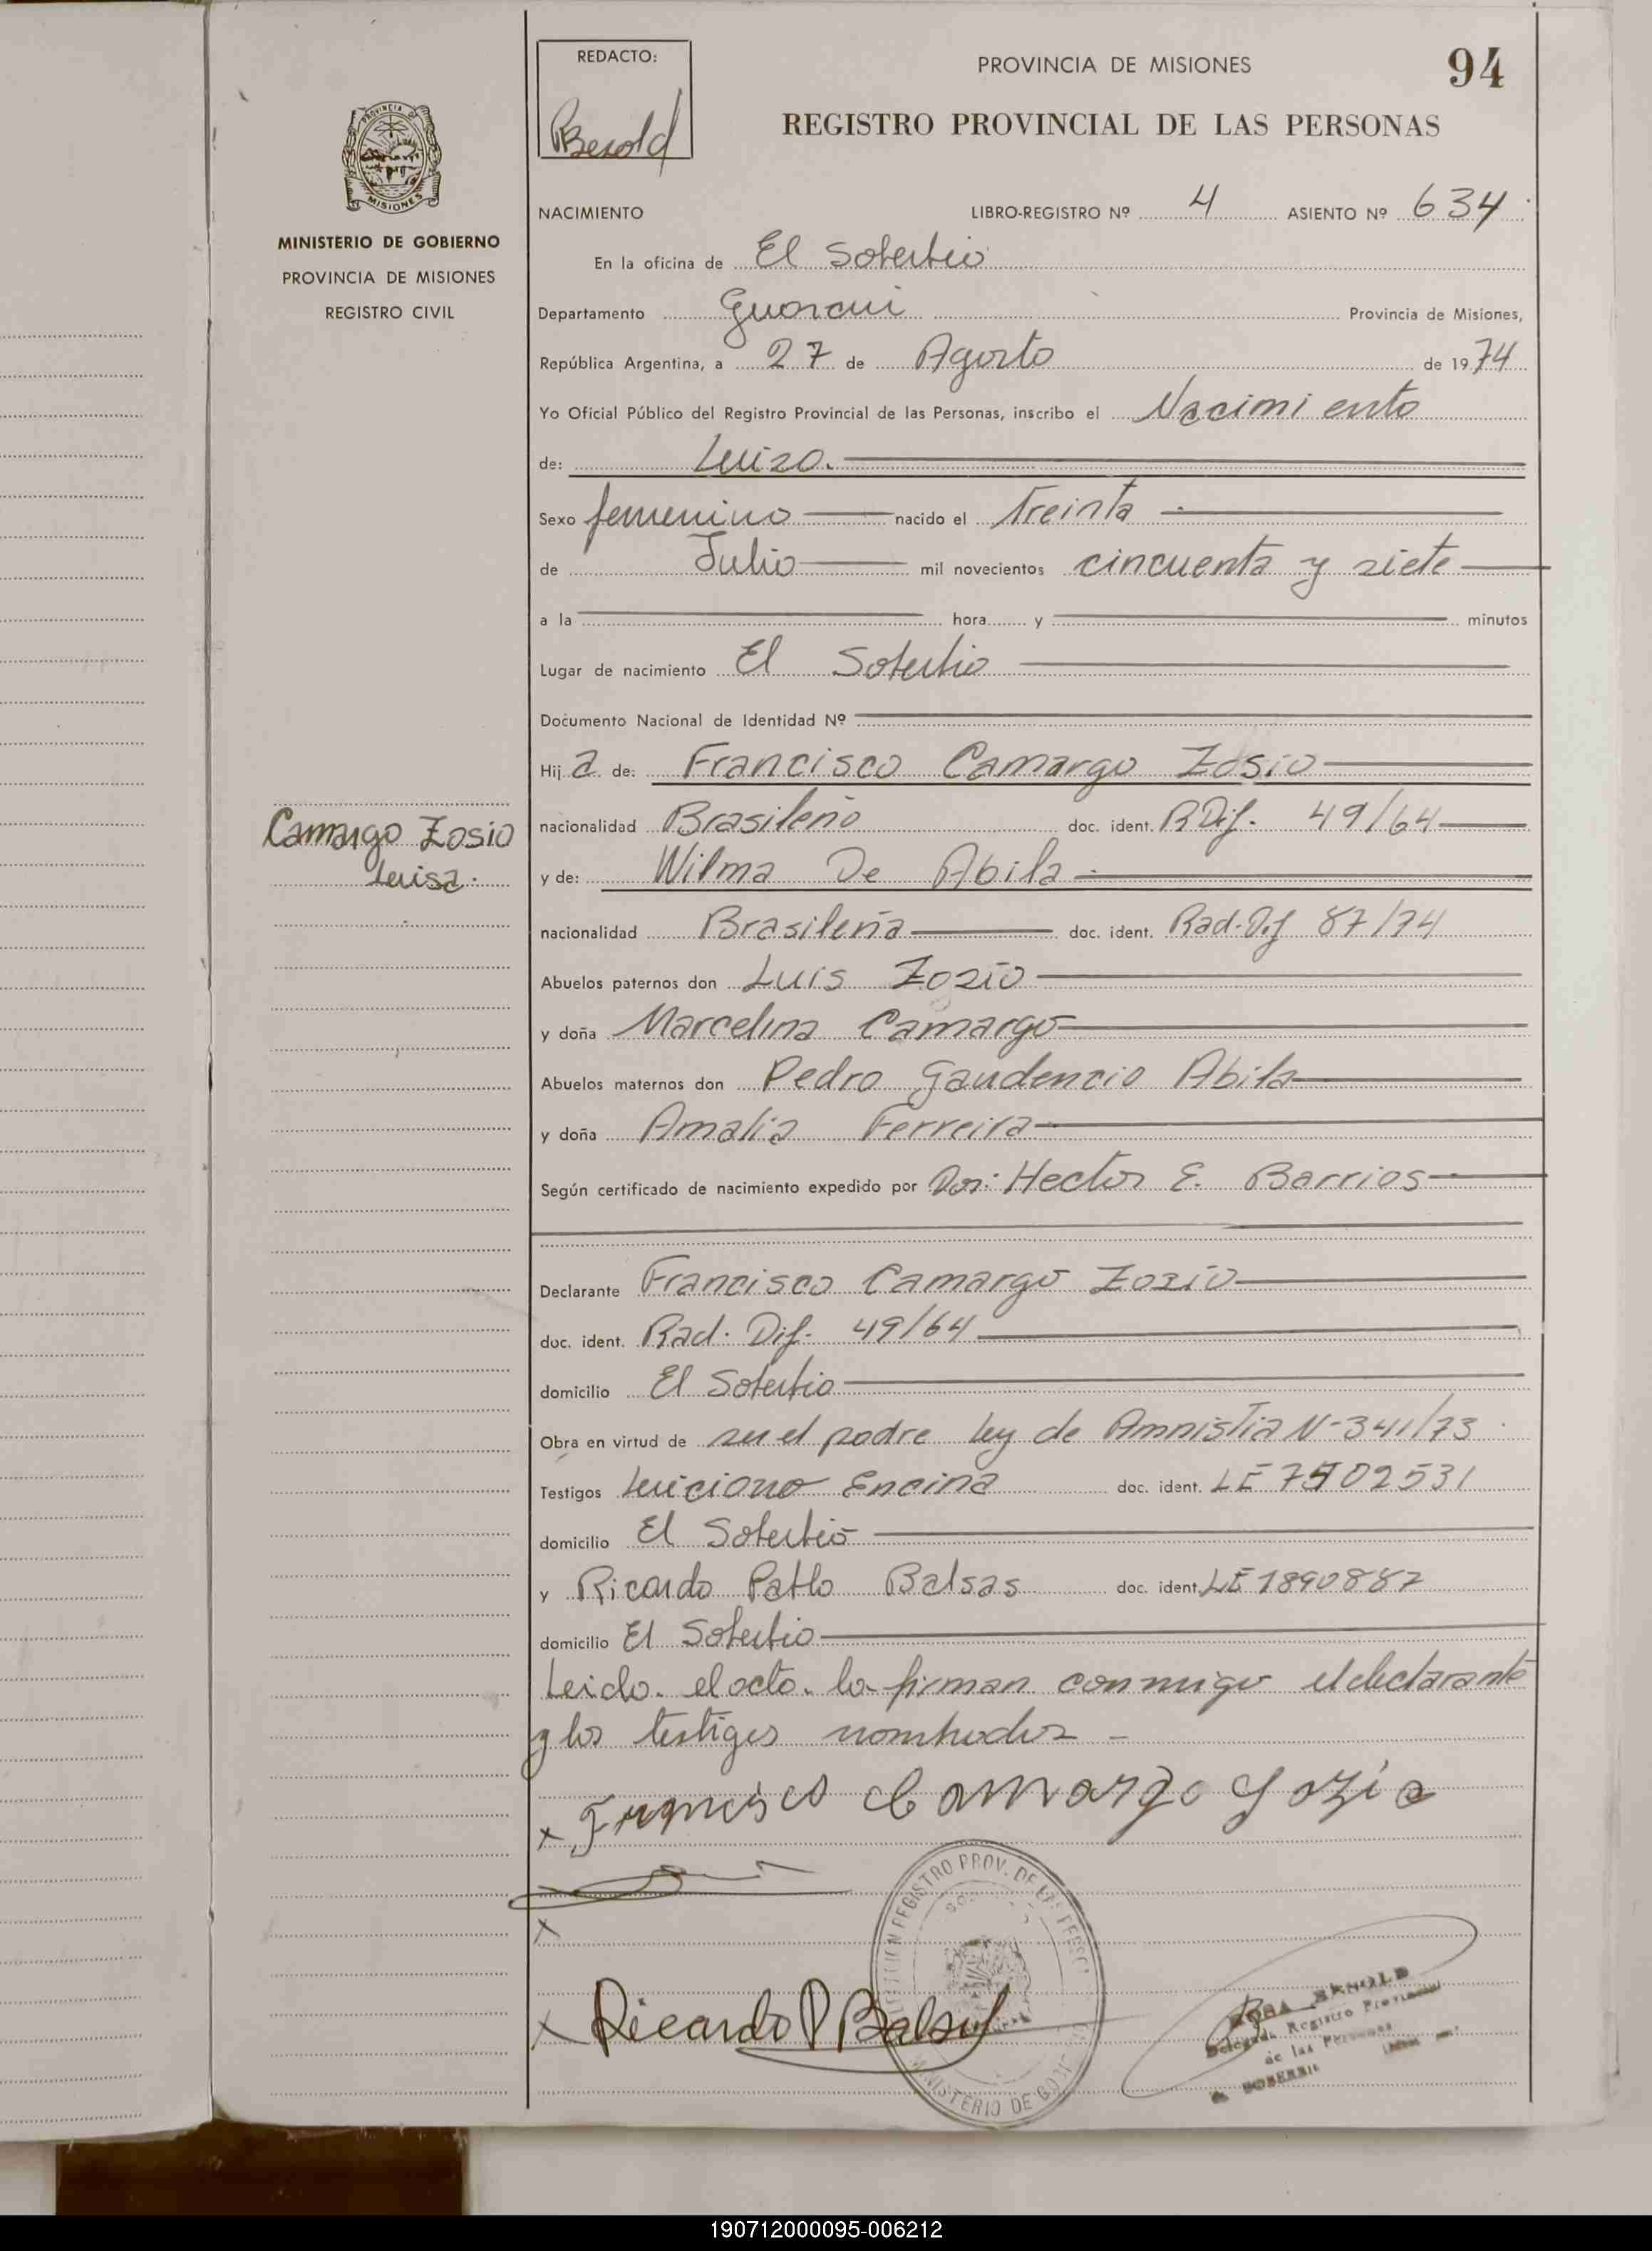 REDACTO:
Besold
PROVINCIA DE MISIONES
94
REGISTRO PROVINCIAL DE LAS PERSONAS
PROVINCIA DE
MISIONES
MINISTERIO DE GOBIERNO
PROVINCIA DE MISIONES
REGISTRO CIVIL
NACIMIENTO LIBRO-REGISTRO Nº 4 ASIENTO Nº 634
En la oficina de El Soberbio
Departamento Guarani Provincia de Misiones,
República Argentina, a 27 de Agosto de 1974
Yo Oficial Público del Registro Provincial de las Personas, inscribo el Nacimiento
de: Luisa.
Sexo femenino nacido el Treinta
de Julio mil novecientos cincuenta y siete
a la hora y minutos
Lugar de nacimiento El Soberbio
Documento Nacional de Identidad Nº
Hij a de: Francisco Camargo Zosio
Camargo Zosio
Luisa.
nacionalidad Brasileño doc. ident. R Dif. 49/64
y de: Wilma De Abila
nacionalidad Brasileña doc. ident. Rad. Dif 87/74
Abuelos paternos don Luis Zosio
y doña Marcelina Camargo
Abuelos maternos don Pedro Gaudencio Abila
y doña Amalia Ferreira
Según certificado de nacimiento expedido por Dor: Hector E. Barrios
Declarante Francisco Camargo Zosio
doc. ident. Rad. Dif. 49/64
domicilio El Soberbio
Obra en virtud de ser el padre ley de Amnistia N- 341/73
Testigos Luciano Encina doc. ident. LE 7502531
domicilio El Soberbio
y Ricardo Pablo Balsas doc. ident. LE 1890887
domicilio El Soberbio
Leido. el acto. lo firman conmigo el declarante
y los testigos nombrados -
x Francisco Camargo Zozio
x
x Ricardo P Balsas
REGISTRO PROV. DE LAS PERSO
MINISTERIO DE GOB
ROSA BESOLD
Delegada Registro Provincial
de las Personas
SOBERBIO
190712000095-006212